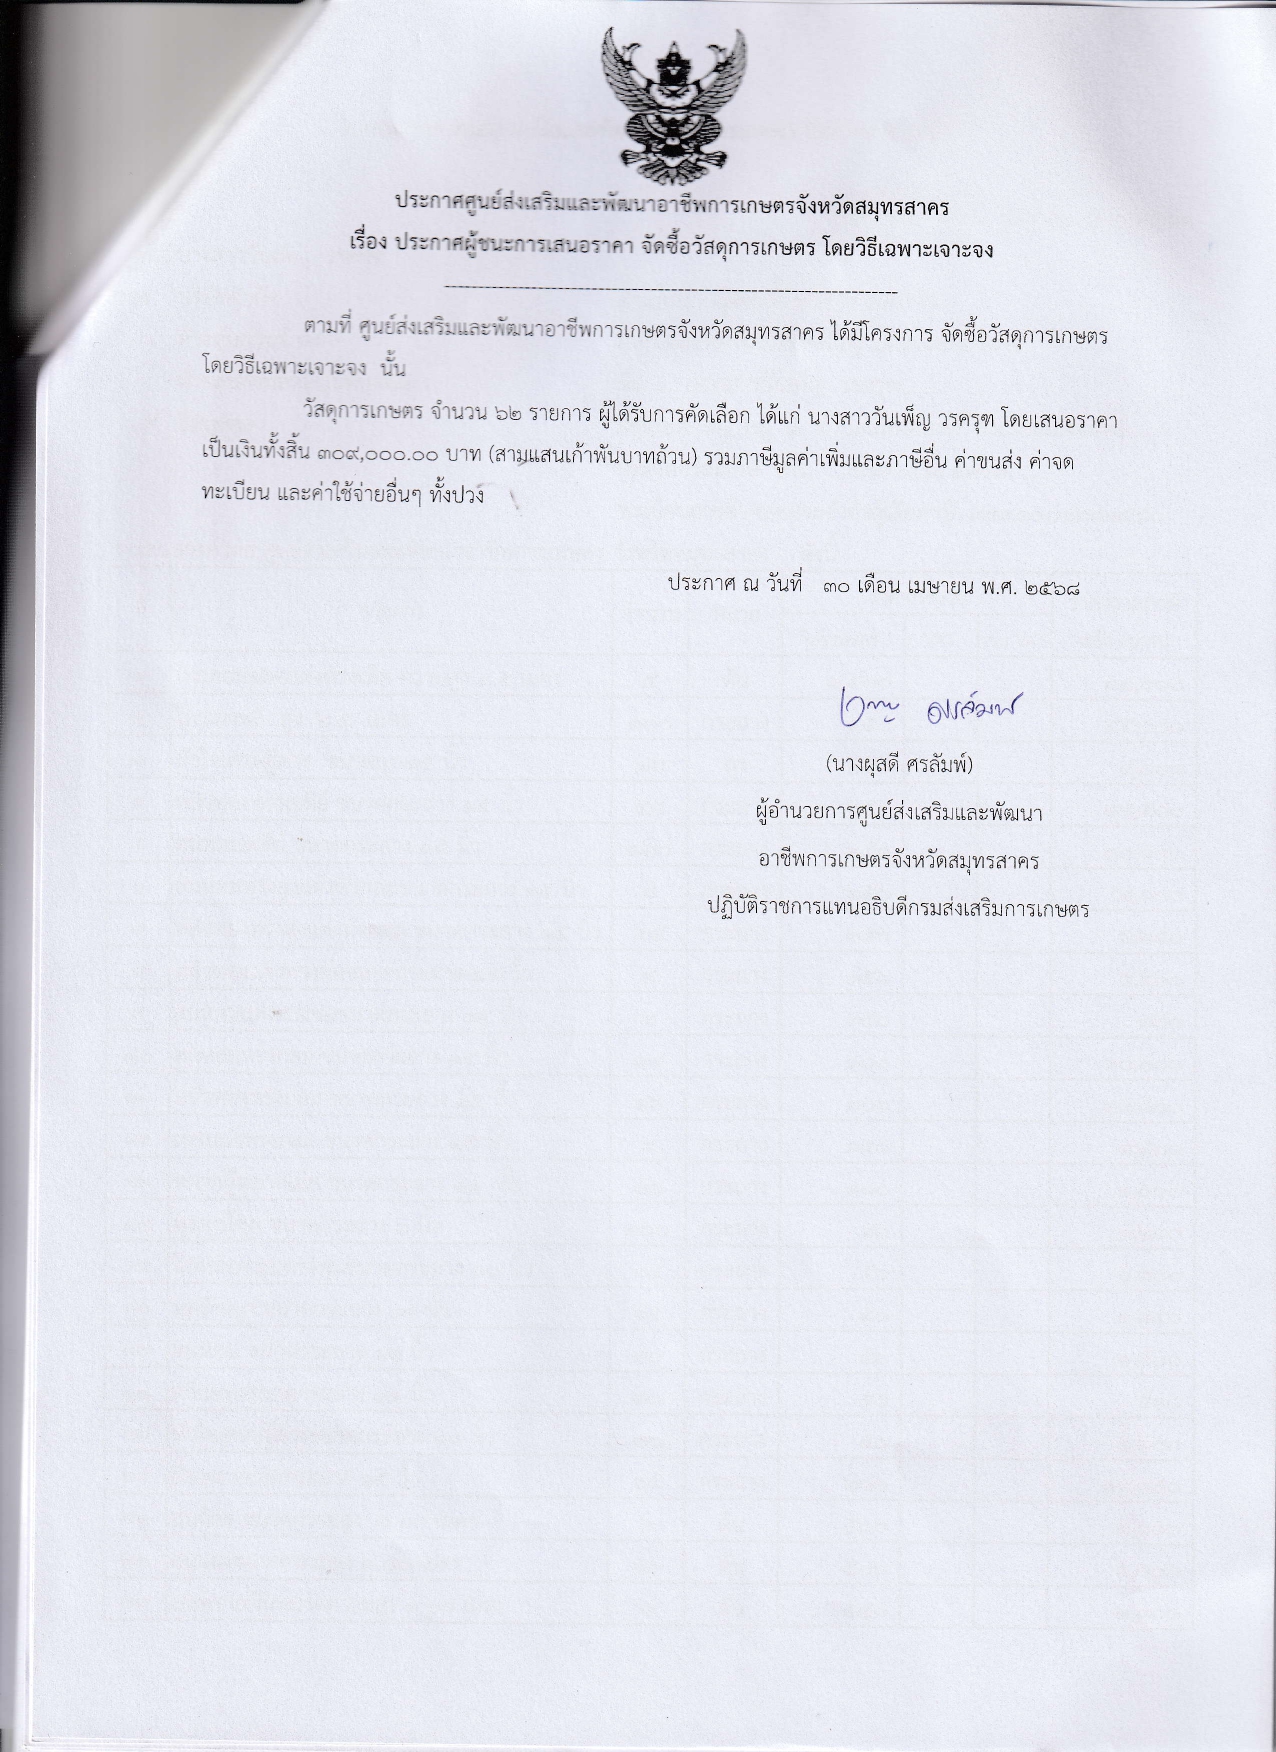 ประกาศศูนย์ส่งเสริมและพัฒนาอาชีพการเกษตรจังหวัดสมุทรสาคร
เรื่อง ประกาศผู้ชนะการเสนอราคา จัดซื้อวัสดุการเกษตร โดยวิธีเฉพาะเจาะจง
--------------------------------------------------------------------
ตามที่ ศูนย์ส่งเสริมและพัฒนาอาชีพการเกษตรจังหวัดสมุทรสาคร ได้มีโครงการ จัดซื้อวัสดุการเกษตร
โดยวิธีเฉพาะเจาะจง นั้น
วัสดุการเกษตร จำนวน ๖๒ รายการ ผู้ได้รับการคัดเลือก ได้แก่ นางสาววันเพ็ญ วรครุฑ โดยเสนอราคา
เป็นเงินทั้งสิ้น ๓๐๙,๐๐๐.๐๐ บาท (สามแสนเก้าพันบาทถ้วน) รวมภาษีมูลค่าเพิ่มและภาษีอื่น ค่าขนส่ง ค่าจด
ทะเบียน และค่าใช้จ่ายอื่นๆ ทั้งปวง
ประกาศ ณ วันที่ ๓๐ เดือน เมษายน พ.ศ. ๒๕๖๘
(นางผุสดี ศรลัมพ์)
ผู้อำนวยการศูนย์ส่งเสริมและพัฒนา
อาชีพการเกษตรจังหวัดสมุทรสาคร
ปฏิบัติราชการแทนอธิบดีกรมส่งเสริมการเกษตร